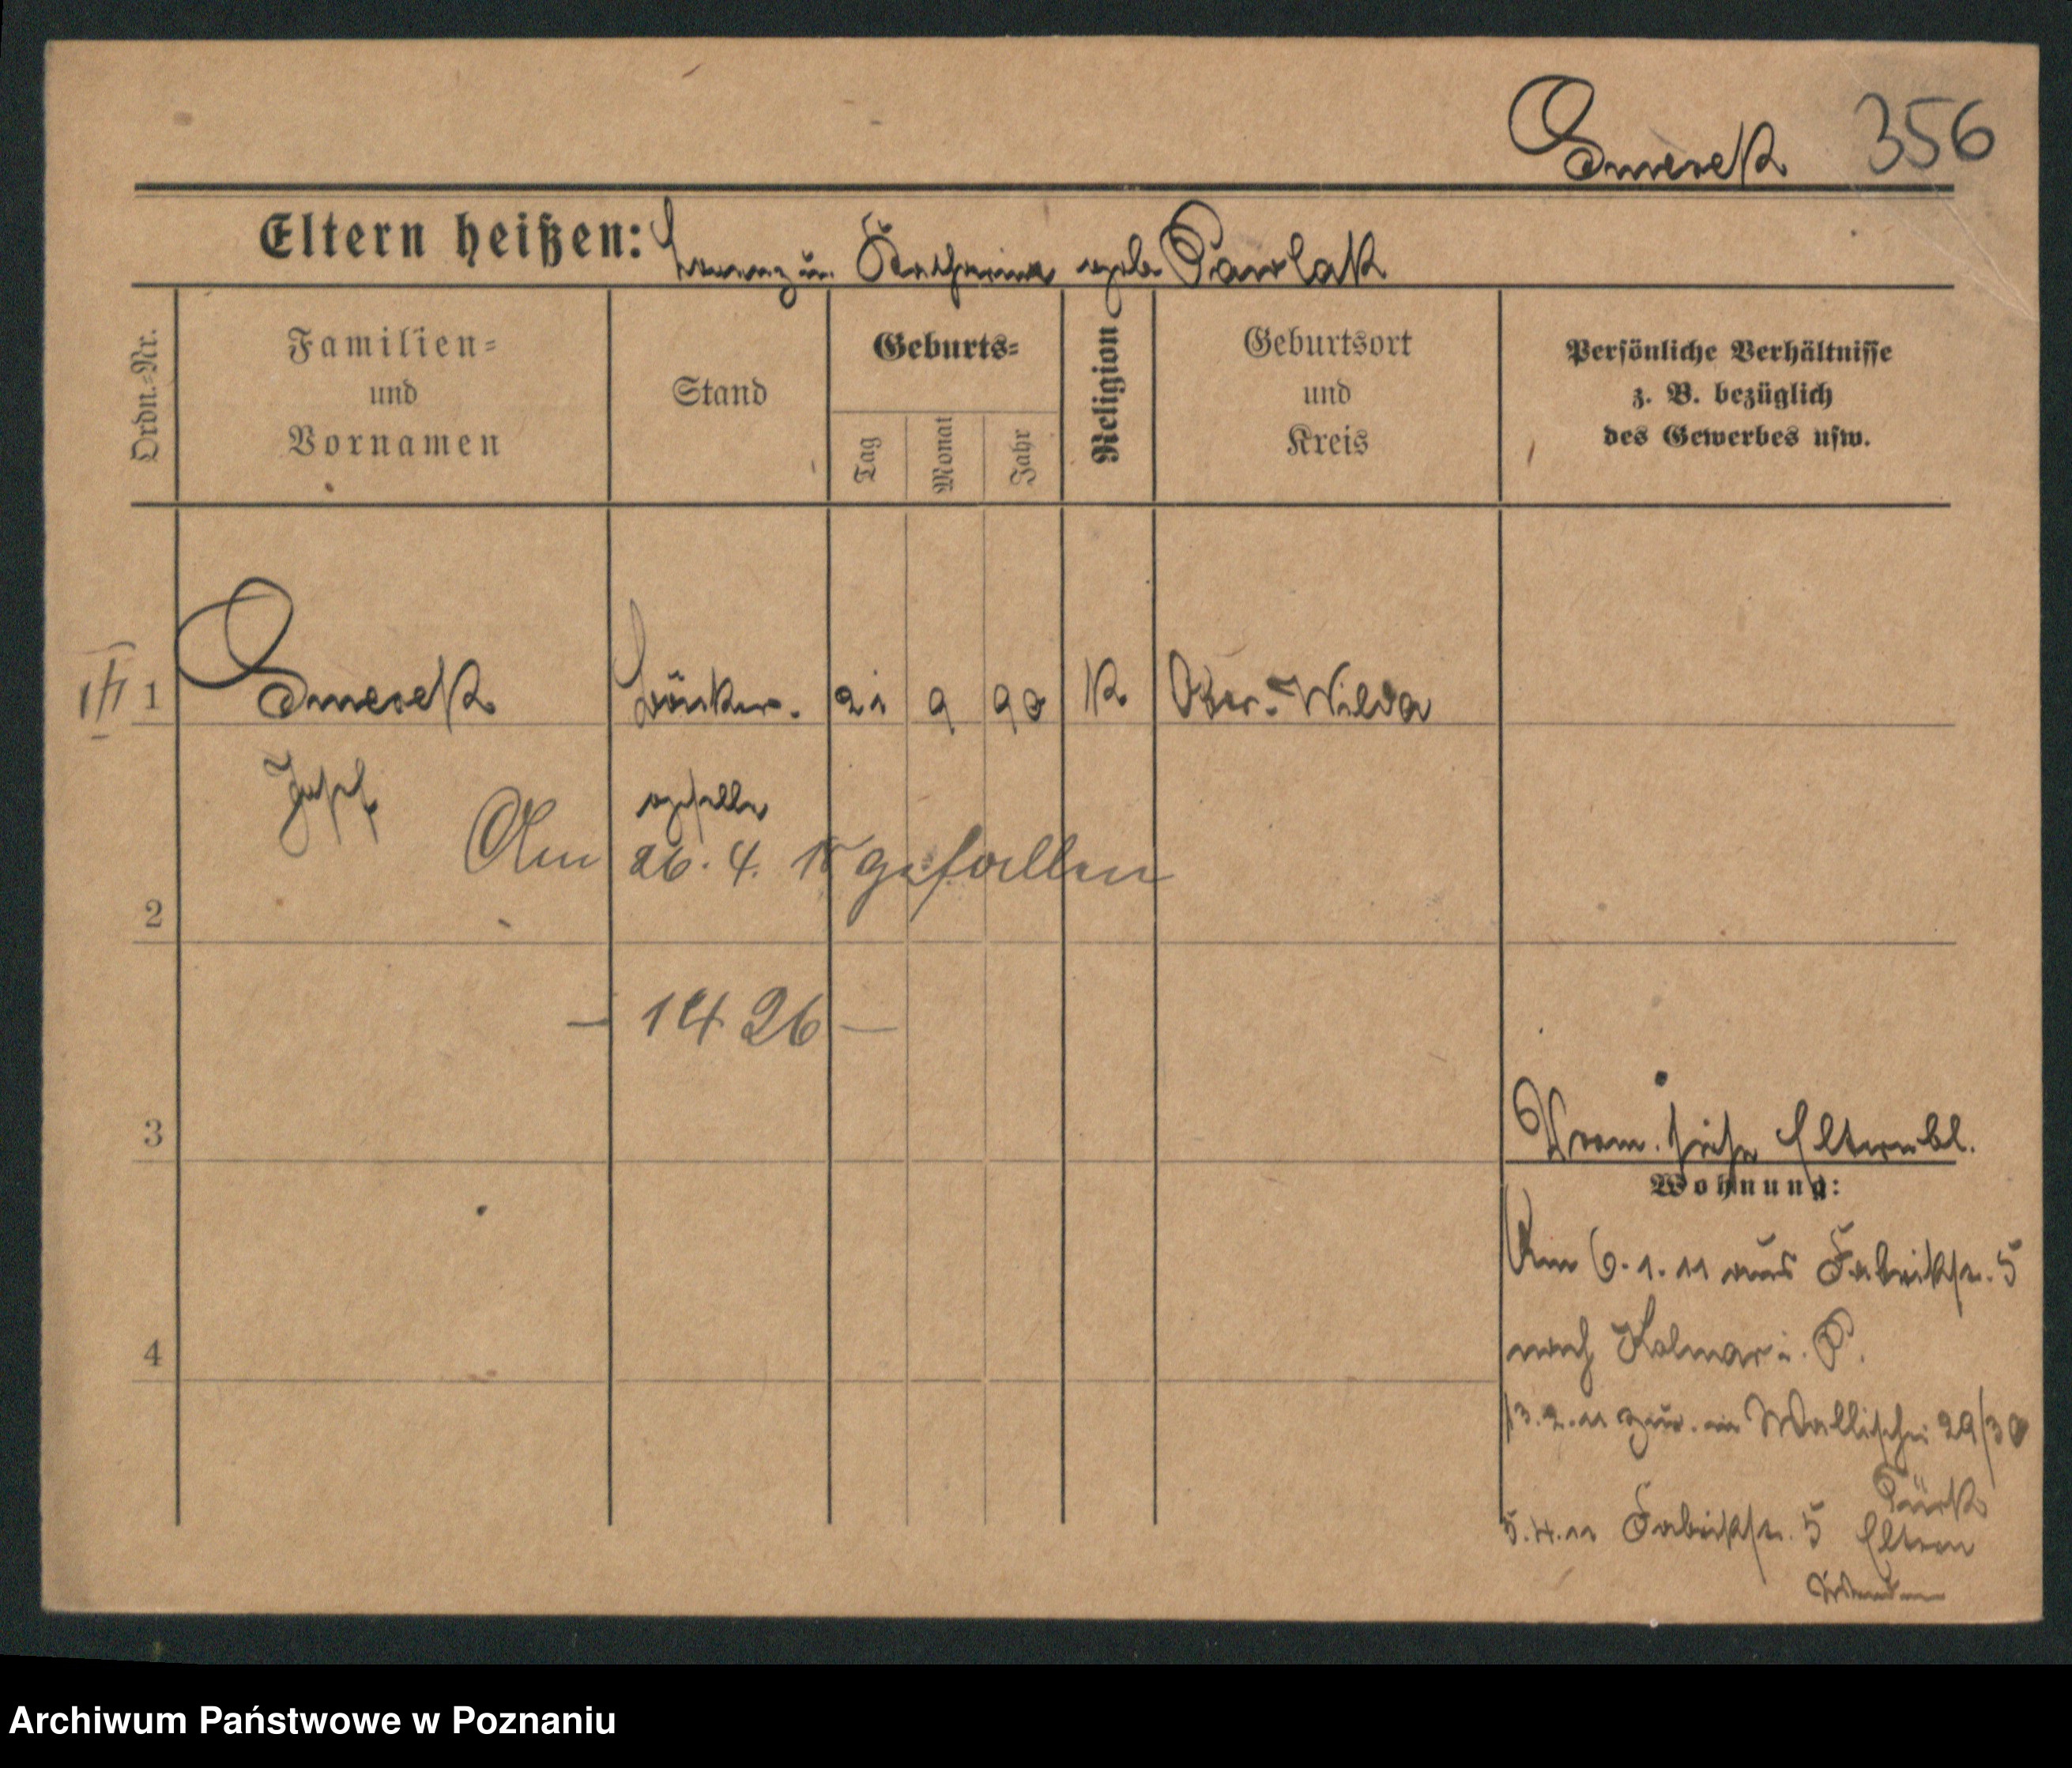 Smerek 356
Eltern heißen: Lorenz u. Katharina geb. Pawlak
Ordn.=Nr.
Familien=
und
Vornamen
Stand
Geburts=
Tag
Monat
Jahr
Religion
Geburtsort
und
Kreis
Persönliche Verhältnisse
z. B. bezüglich
des Gewerbes usw.
1 Smerek Bäcker. 21 9 90 K Ober-Wilda
Josef geselle
Am 26. 4. 15 gefallen
2
— 1426 —
3
siehe Elternbl.
Wohnung:
Am 6.1.11 aus Fabrikstr. 5
nach Kolmar i. P.
4
13.2.11 zur. in Wallischei 29/30
Türk
5.4.11 Fabrikstr. 5 Eltern
Archiwum Państwowe w Poznaniu